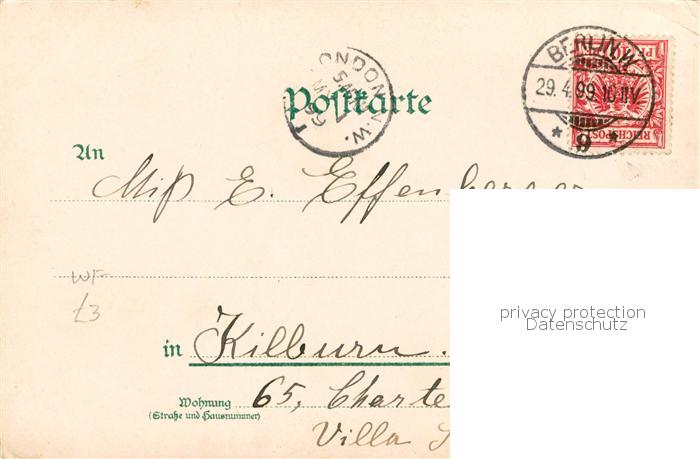 BERLIN. W.
29. 4. 99 10-11V.
* 9 *
REICHSPOST
LONDON. N.W.
Postkarte
An
Miß E. Effenberger
WF-
£3
privacy protection
Datenschutz
in Kilburn.
65, Charte
Wohnung
(Straße und Hausnummer)
Villa